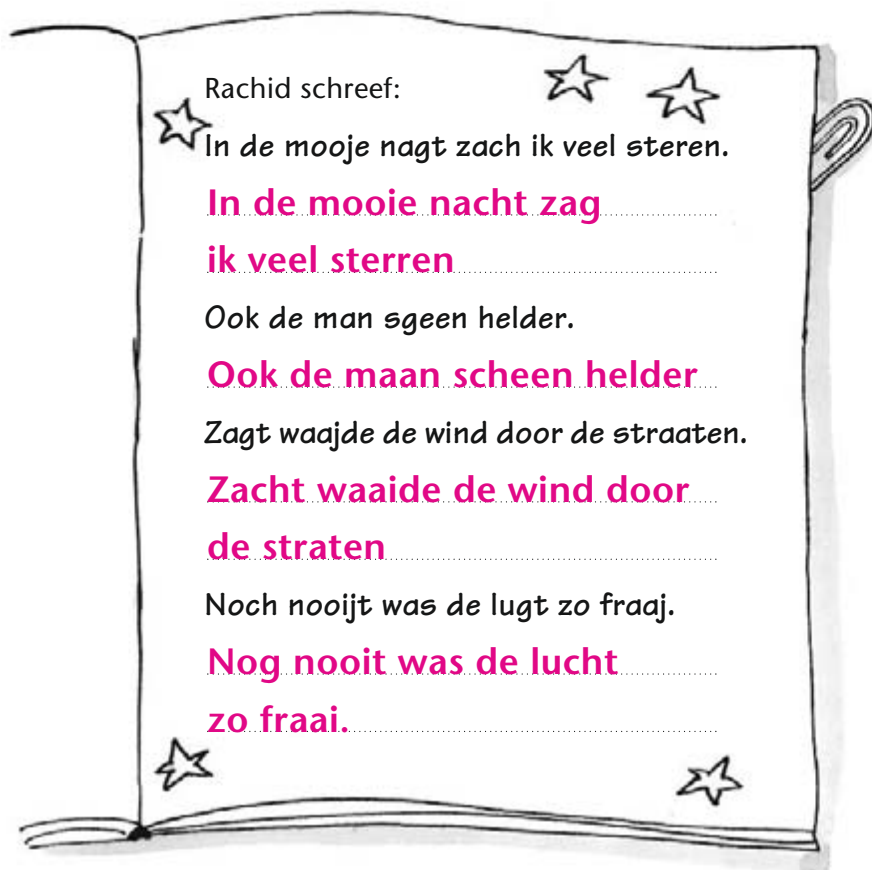 Rachid schreef:
In de mooje nagt zach ik veel steren.
In de mooie nacht zag
ik veel sterren
Ook de man sgeen helder.
Ook de maan scheen helder
Zagt waajde de wind door de straaten.
Zacht waaide de wind door
de straten
Noch nooijt was de lugt zo fraaj.
Nog nooit was de lucht
zo fraai.